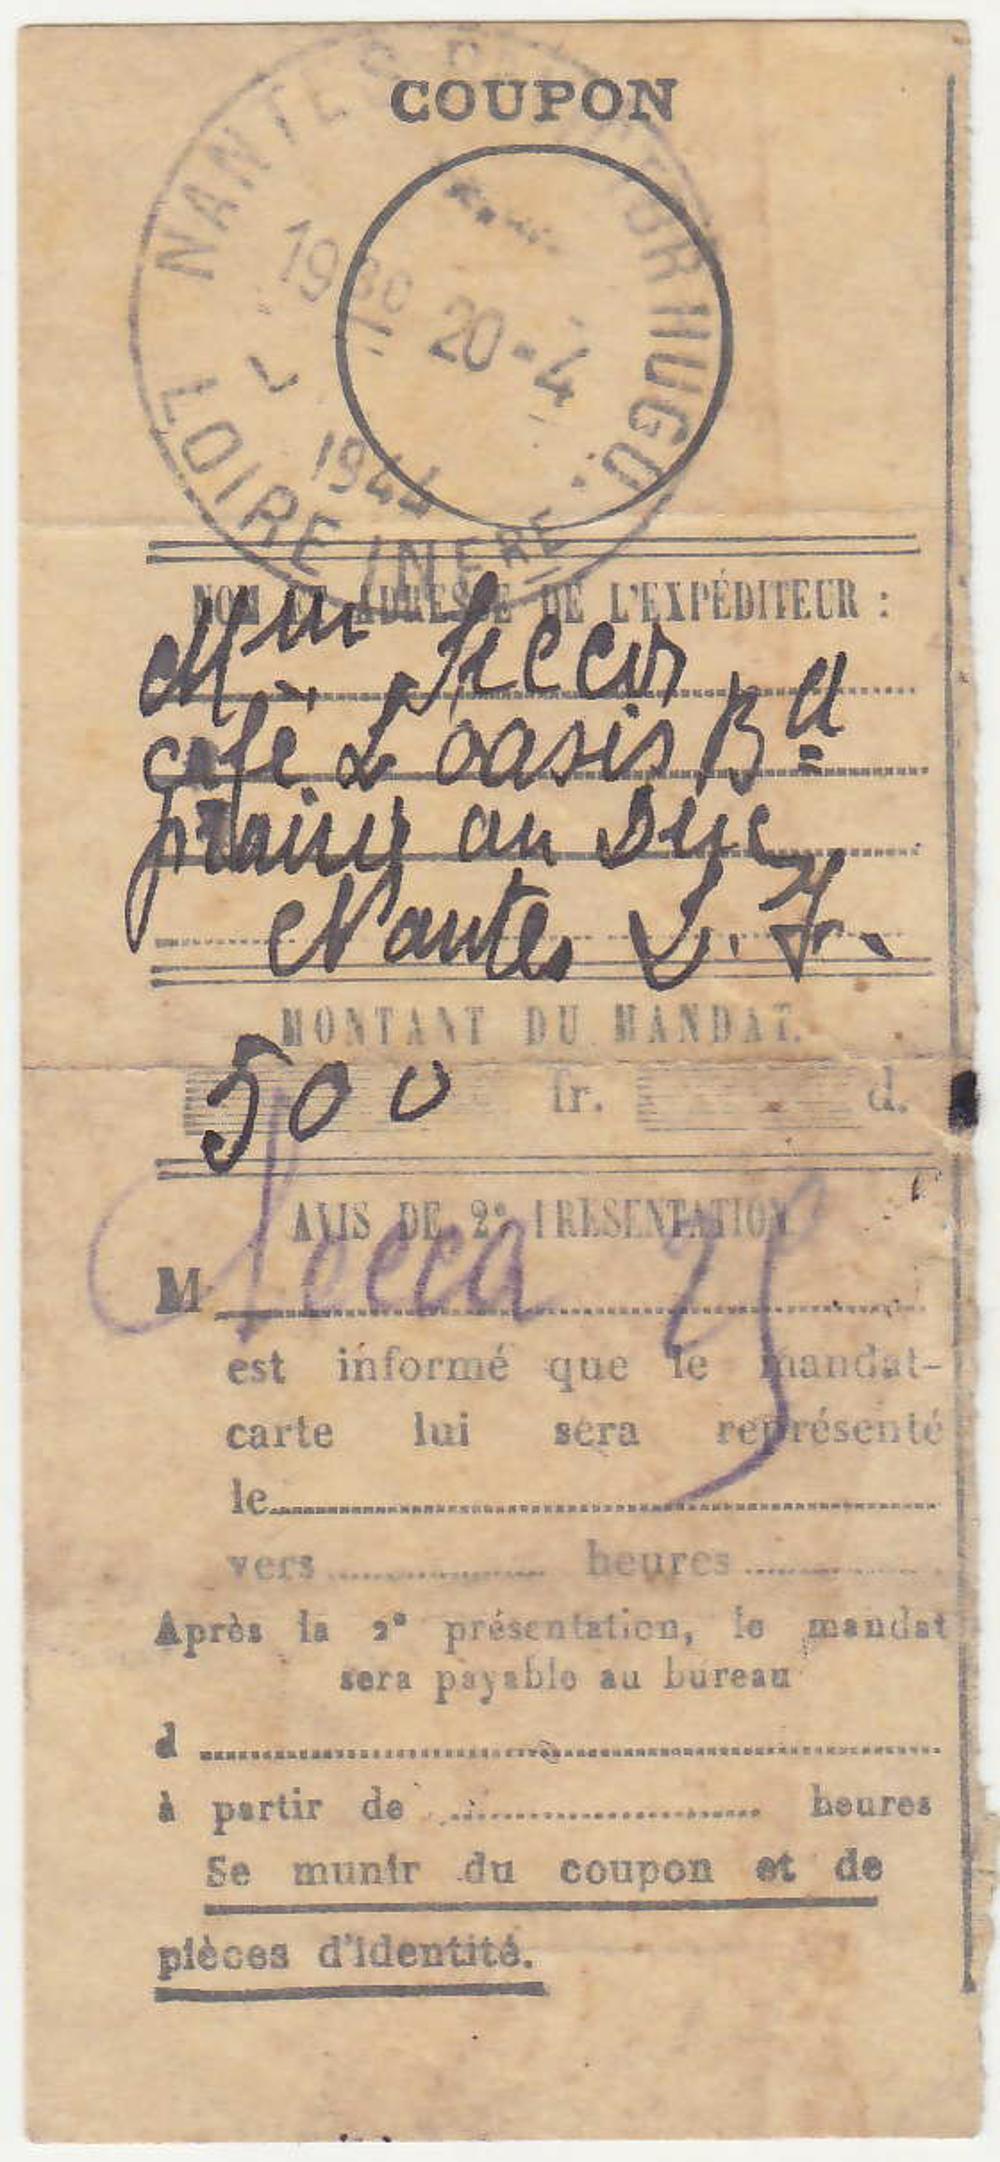 COUPON
NANTES
HUGO
LOIRE INFRE
1930 20-4
1944
NOM ET ADRESSE DE L'EXPÉDITEUR :
Mme
café L oasis Bd
prairie au Duc
Nantes L. I.
MONTANT DU MANDAT.
500 fr. d.
AVIS DE 2e PRESENTATION
M
est informé que le mandat-
carte lui sera représenté
le
vers heures
Après la 2e présentation, le mandat
sera payable au bureau
d
à partir de heures
Se munir du coupon et de
pièces d'identité.